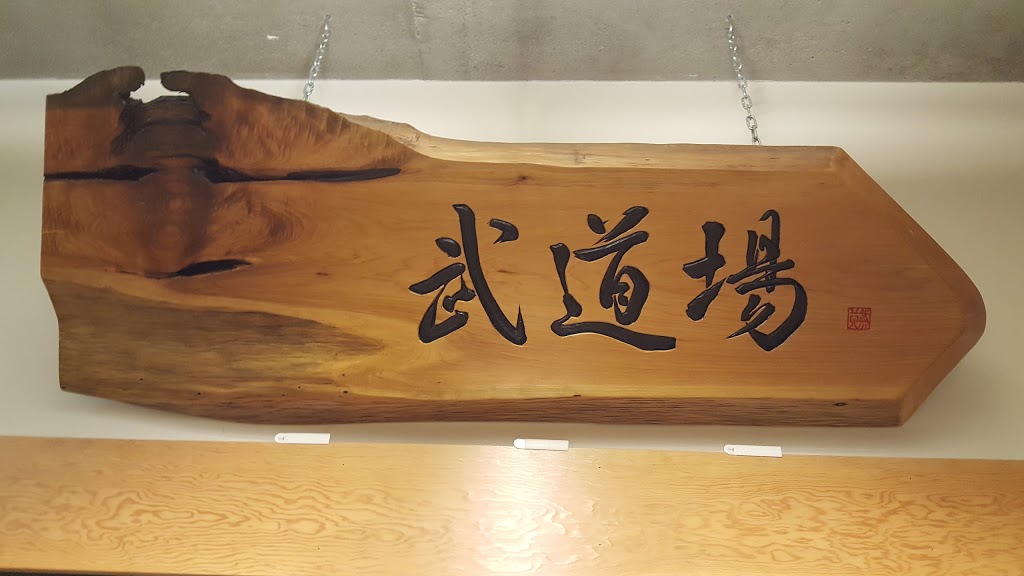 武道場